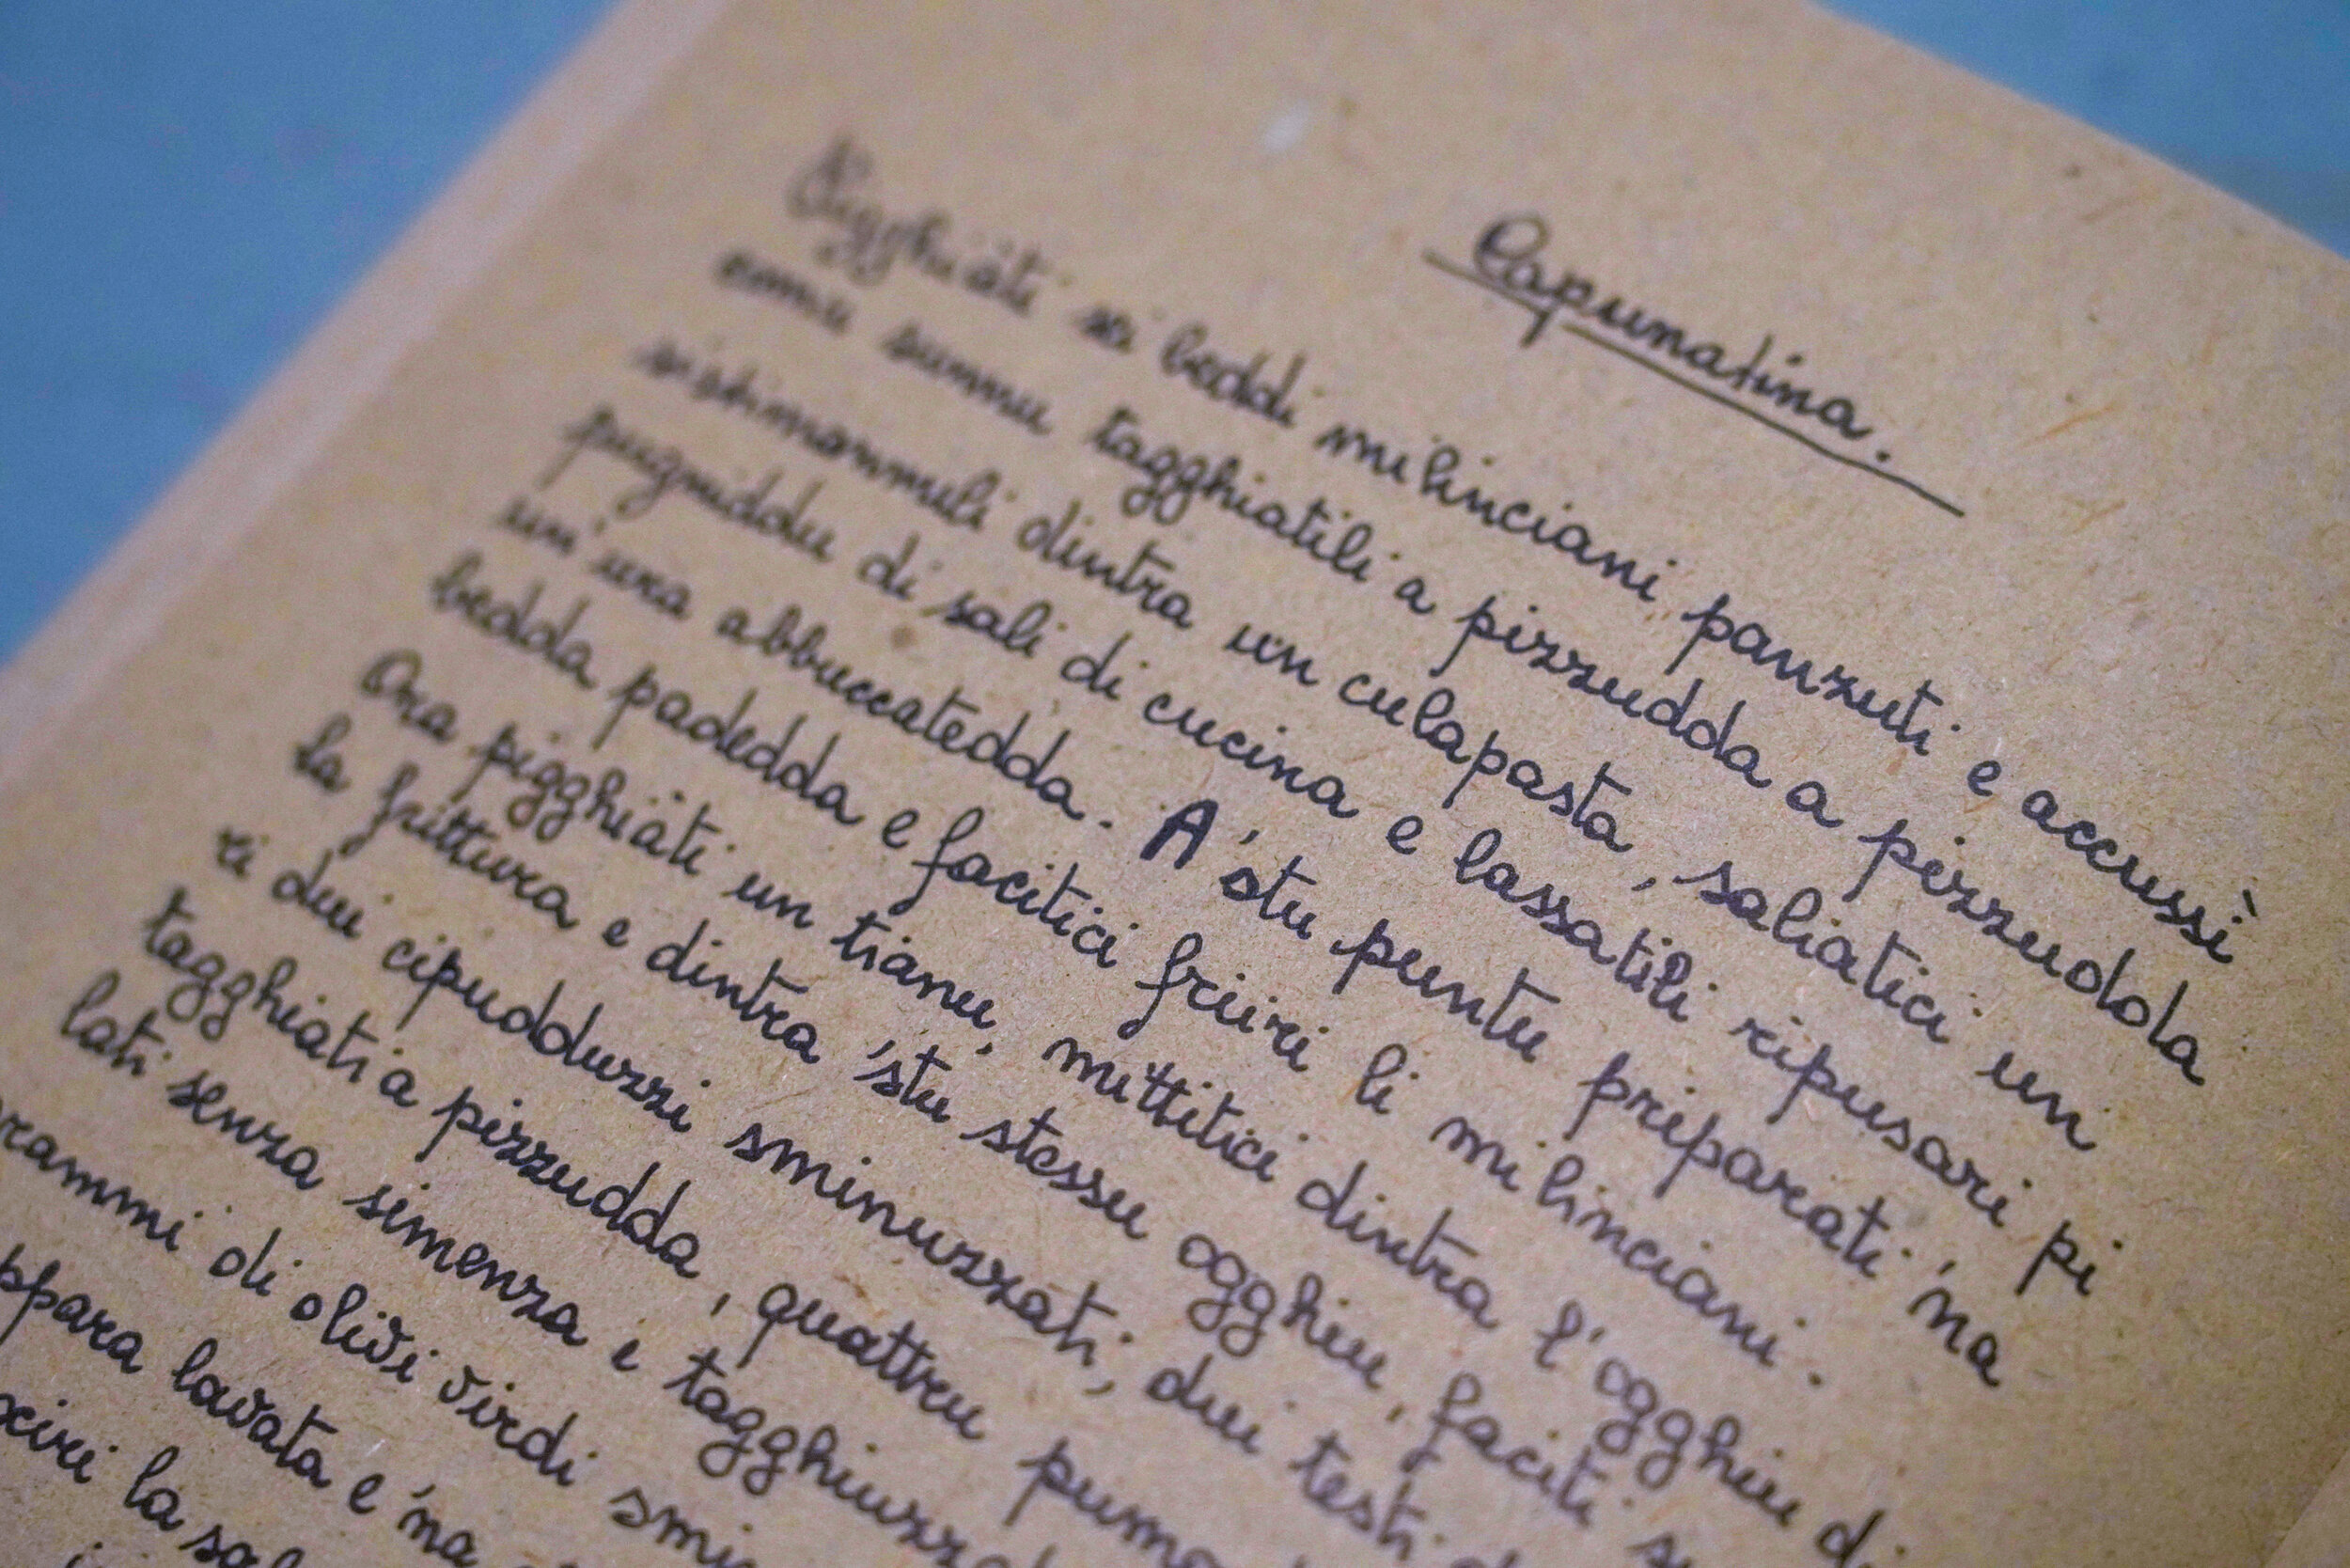 Capunatina.
Pigghiàti sei beddi milinciani panzuti e accussì
comu sunnu tagghiatili a pizzudda a pizzudda
sistimannuli dintra un culapasta, saliatici un
pugniddu di sali di cucina e lassatili ripusari pi
un'ura abbuccatedda. A 'stu puntu priparati 'na
bedda padedda e facitici friiri li milinciani.
Ora pigghiàti un tianu, mittitici dintra l'ogghiu di
la frittura e dintra 'stu stessu ogghiu, faciti
ri dui cipudduzzi sminuzzati, dui testi
tagghiati a pizzudda, quattru
lati senza simenza e
di olivi virdi
lavata e 'na
la